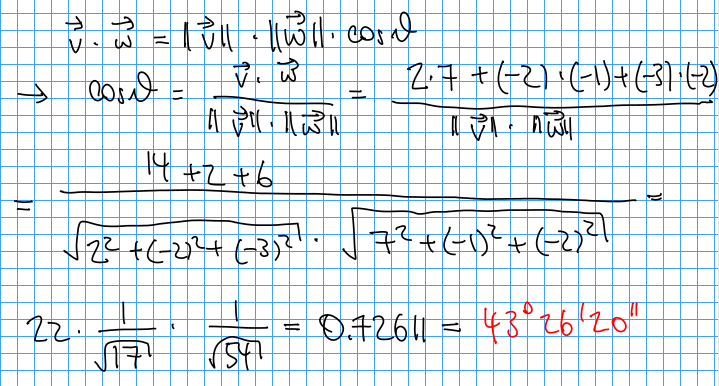 v⃗ · w⃗ = ‖v⃗‖ · ‖w⃗‖ · cosϑ
→ cosϑ = (v⃗ · w⃗) / (‖v⃗‖ · ‖w⃗‖) = (2·7 + (-2)·(-1) + (-3)·(-2)) / (‖v⃗‖ · ‖w⃗‖)
= (14 + 2 + 6) / (√(2² + (-2)² + (-3)²) · √(7² + (-1)² + (-2)²)) =
22 · 1/√17 · 1/√54 = 0.72611 = 43° 26' 20"